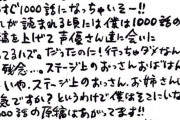 すぐ1000話になっちゃいそー!!
れが読まれる頃には僕は1000話の
稿を上げて声優さん達に会いに
ってるハズ。だったのに!行っちゃダメなん
残念…。ステージ上のおっさんおばさんた
いや、ステージ上のお兄さん、お姉さん
急ですか?というわけで僕はそこにいな
00話の原稿はあがってます!!